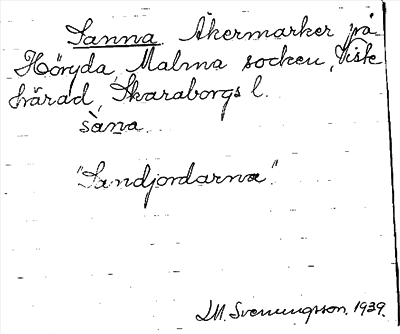 Sanna. Åkermarker på
Höryda, Malma socken, Viste
härad, Skaraborgs l.
sàna.
"Sandjordarna".
LM. Svenungsson. 1939.